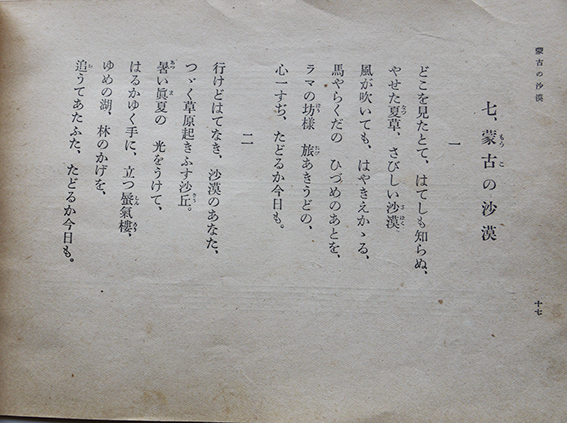 蒙古の沙漠
七、蒙古の沙漠
一
どこを見たとて、はてしも知らぬ、
やせた夏草、さびしい沙漠、
風が吹いても、はやきえかゝる、
馬やらくだの ひづめのあとを、
ラマの坊様 旅あきうどの、
心一すぢ、たどるか今日も。
二
行けどはてなき、沙漠のあなた、
つゞく草原起きふす沙丘。
暑い眞夏の 光をうけて、
はるかゆく手に、立つ蜃氣樓、
ゆめの湖、林のかげを、
追うてあたふた、たどるか今日も。
十七